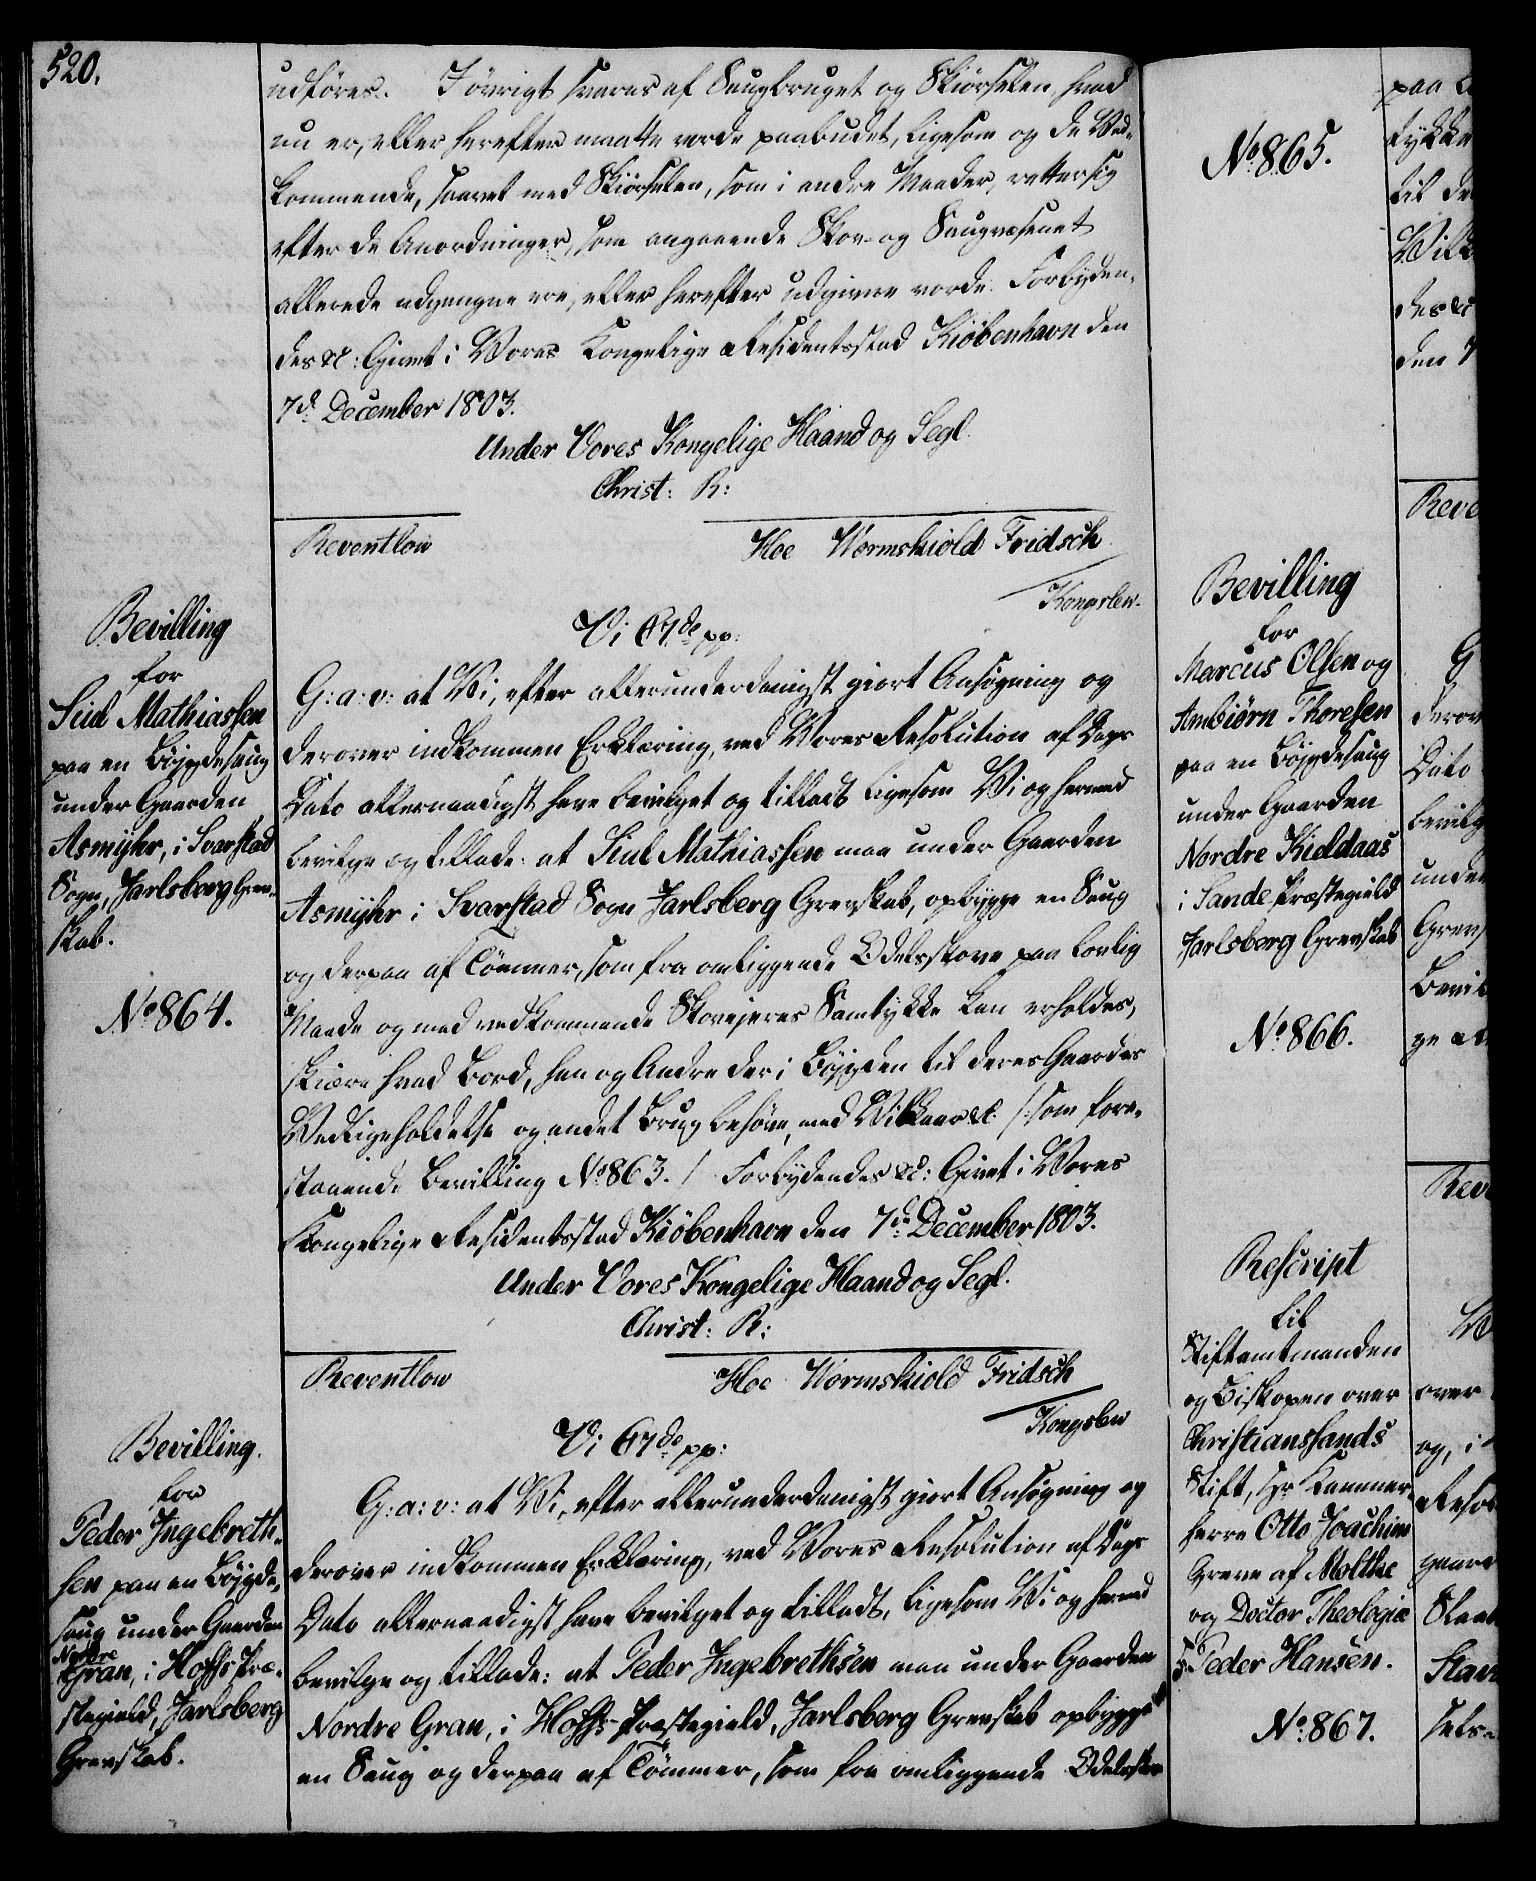 520.
udföres. I övrigt svares af Saugbruget og Skiörselen, hvad
nu er, eller herefter maatte vorde paabudet, ligesom og de Ved-
kommende, saavel med Skiörselen, som i andre Maader, retter sig
efter de Anordninger, som angaaende Skov- og Saugvæsenet
allerede udgangne ere, eller herefter udgivne vorde. Forbyden-
des &c: Givet i Vores Kongelige Residentsstad Kiöbenhavn den
7d. December 1803.
Under Vores Kongelige Haand og Segl.
Christ: R:
Reventlow
Hoe Wormskiold Fridsch
Kongslew.
Bevilling
for
Siul Mathiassen
paa en Böjgdesaug
under Gaarden
Asmyhr, i Svarstad
Sogn, Jarlsberg Grev-
skab.
No. 864.
Vi C7de pp:
G: a: v: at Vi, efter allerunderdanigst giort Ansögning og
derover indkommen Erklæring, ved Vores Resolution af Dags
Dato allernaadigst have bevilget og tilladt, ligesom Vi og hermed
bevilge og tillade: at Siul Mathiassen maa under Gaarden
Asmyhr i Svarstad Sogn Jarlsberg Grevskab, opbygge en Saug
og derpaa af Tömmer, som fra omliggende Odelsskove paa lovlig
Maade og med vedkommende Skovejeres Samtykke kan erholdes,
skiære hvad Bord, han og Andre der i Böjgden til deres Gaardes
Vedligeholdelse og andet Brug behöve, med Vilkaar &c. /: som fore-
staaende Bevilling No. 863. / Forbydendes &c: Givet i Vores
Kongelige Residentsstad Kiöbenhavn den 7de December 1803.
Under Vores Kongelige Haand og Segl.
Christ: R:
Reventlow
Hoe Wormskiold Fridsch
Kongslew
Bevilling.
for
Peder Ingebreth-
sen paa en Böjgde-
saug under Gaarden
Nordre
Gran, i Hoffs Præ-
stegield, Jarlsberg
Grevskab.
Vi C7de pp:
G: a: v: at Vi, efter allerunderdanigst giort Ansögning og
derover indkommen Erklæring, ved Vores Resolution af Dags
Dato allernaadigst have bevilget og tilladt, ligesom Vi og hermed
bevilge og tillade: at Peder Ingebrethsen maa under Gaarden
Nordre Gran, i Hoffs Præstegield, Jarlsberg Grevskab opbygge
en Saug og derpaa af Tömmer, som fra omliggende Odelsskove
No. 865.
Bevilling
for
Marcus Olsen og
Ambiörn Thoresen
paa en Böjgdesaug
under Gaarden
Nordre Kiddaas
i Sande Præstegield
Jarlsberg Grevskab
No. 866.
Rescript
til
Stiftamtmanden
og Biskopen over
Christianssands
Stift, Hr. Kammer-
herre Otto Joachim
Greve af Moltke
og Doctor Theologiæ
Hr. Peder Hansen.
No. 867.
paa
tykke
til
des &c
den 7
Reve
G
derov
Dato
bevilg
under
Grevs
Bevil
ge
Rev
over
og, i
Resol